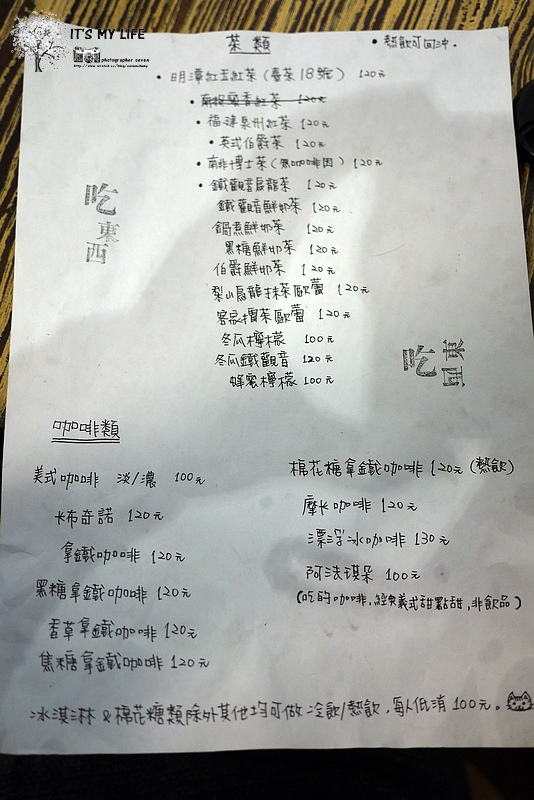 IT'S MY LIFE
photographer seven
茶類
• 熱飲可回沖.
• 明潭紅玉紅茶(台茶18號) 120元
• 南投蜜香紅茶 120元
• 福建泉州紅茶 120元
• 英式伯爵茶 120元
• 南非博士茶(無咖啡因) 120元
• 鐵觀音烏龍茶 120元
鐵觀音鮮奶茶 120元
鍋煮鮮奶茶 120元
黑糖鮮奶茶 120元
伯爵鮮奶茶 120元
梨山烏龍抹茶歐蕾 120元
客家擂茶歐蕾 120元
冬瓜檸檬 100元
冬瓜鐵觀音 120元
蜂蜜檸檬 100元
吃東西
吃東西
咖啡類
美式咖啡 淡/濃 100元
卡布奇諾 120元
拿鐵咖啡 120元
黑糖拿鐵咖啡 120元
香草拿鐵咖啡 120元
焦糖拿鐵咖啡 120元
棉花糖拿鐵咖啡 120元(熱飲)
摩卡咖啡 120元
漂浮冰咖啡 130元
阿法琪朵 100元
(吃的咖啡.經典義式甜點甜,非飲品)
冰淇淋 & 棉花糖類除外其他均可做冷飲/熱飲,每人低消100元。